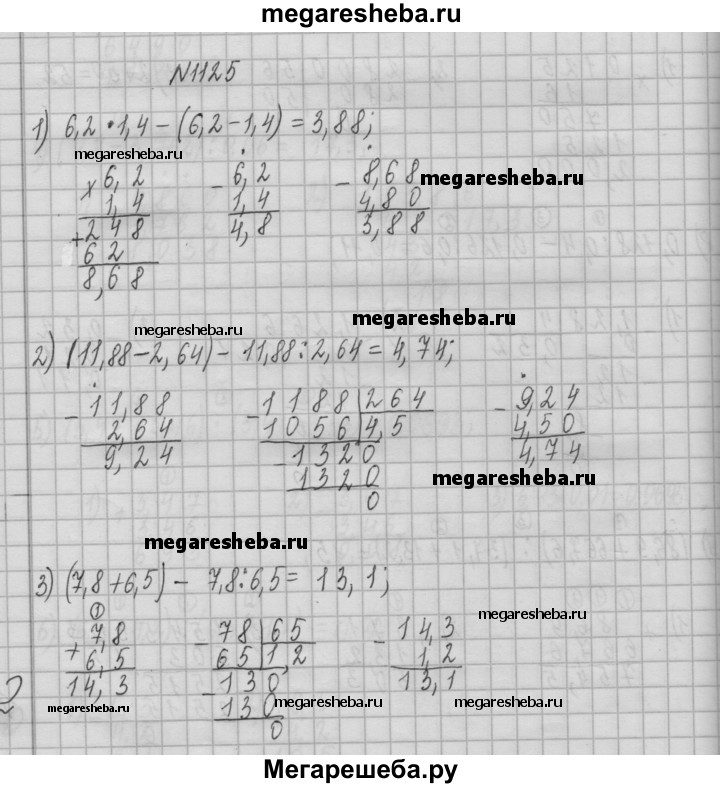 megaresheba.ru
№1125
1) 6,2 · 1,4 - (6,2 - 1,4) = 3,88;
megaresheba.ru
× 6,2
1,4
+ 248
62
8,68
- 6,2
1,4
4,8
- 8,68
4,80
3,88
megaresheba.ru
megaresheba.ru
megaresheba.ru
2) (11,88 - 2,64) - 11,88 : 2,64 = 4,74;
- 11,88
2,64
9,24
- 1188 | 264
1056 | 4,5
- 1320
1320
0
- 9,24
4,50
4,74
megaresheba.ru
megaresheba.ru
3) (7,8 + 6,5) - 7,8 : 6,5 = 13,1;
1
+ 7,8
6,5
14,3
- 78 | 65
65 | 1,2
- 130
130
0
- 14,3
1,2
13,1
megaresheba.ru
megaresheba.ru
megaresheba.ru
megaresheba.ru
Мегарешеба.ру